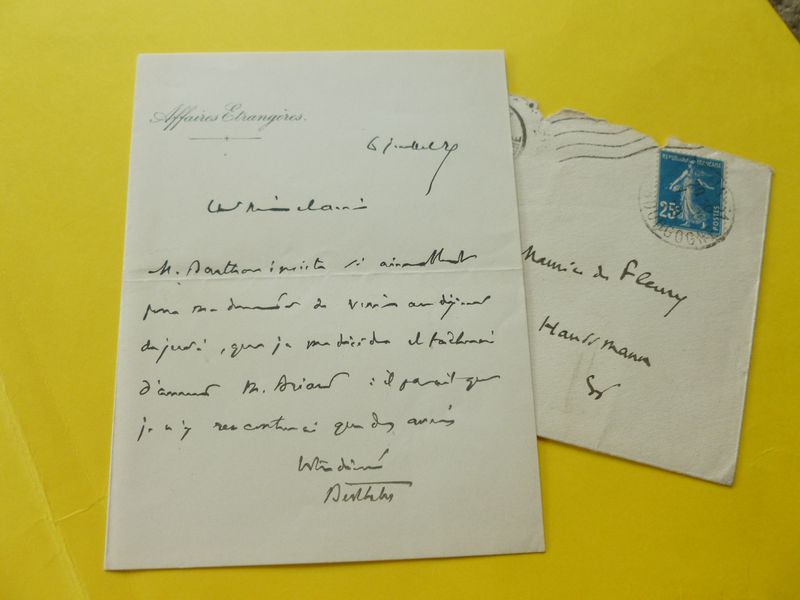 Affaires Etrangères.
6 juillet
M. Barthou insiste si aimablement
pour me demander de venir au déjeuner
de jeudi, que je me décide et tâcherai
d'amener M. Briand : il paraît que
je n'y rencontrerai que des amis
Votre dévoué
Berthelot
REPUBLIQUE FRANÇAISE
25c
POSTES
Maurice de Fleury
Haussmann